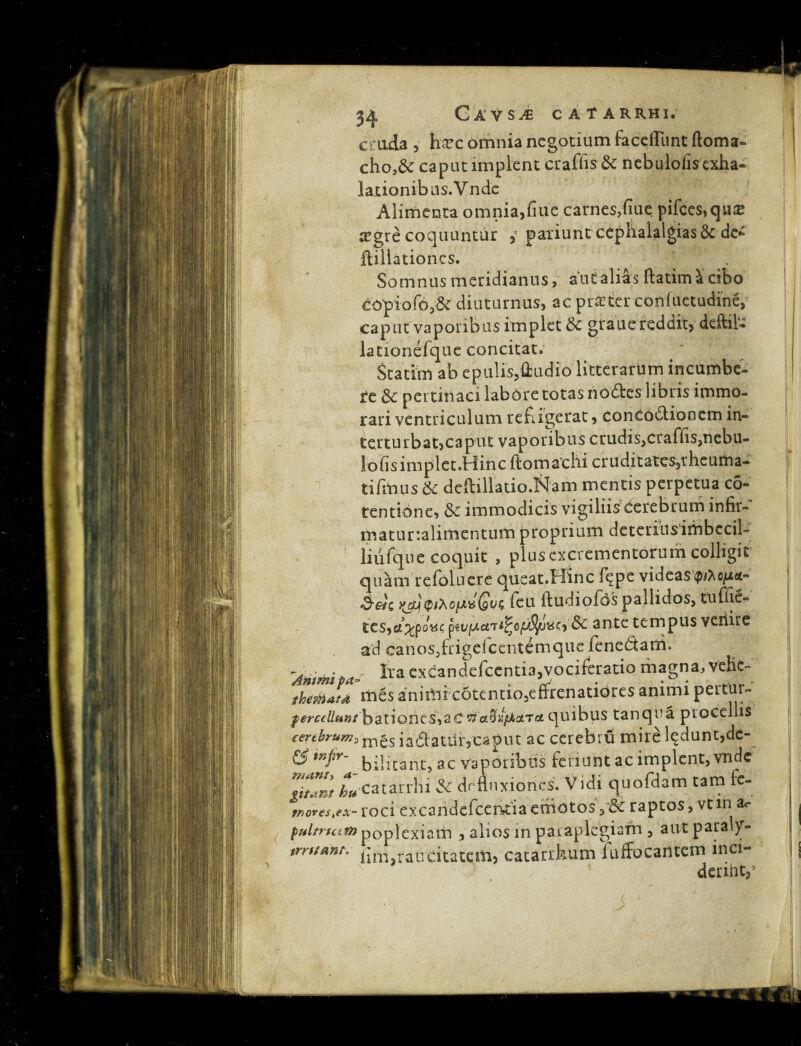 34 CAVSÆ CATARRHI.
cruda, hæc omnia negotium faceſſunt ſtoma-
cho,& caput implent craſſis & nebuloſis exha-
lationibus.Vnde
Alimenta omnia,ſiue carnes,ſiue piſces, quæ
ægrè coquuntur, pariunt cephalalgias & de-
ſtillationes.
Somnus meridianus, aut aliàs ſtatim à cibo
copioſo,& diuturnus, ac præter conſuetudinē,
caput vaporibus implet & graue reddit, deſtil-
lationéſque concitat.
Statim ab epulis,ſtudio litterarum incumbe-
re & pertinaci labore totas noctes libris immo-
rari ventriculum refrigerat, concoctionem in-
terturbat,caput vaporibus crudis,craſſis,nebu-
loſis implet.Hinc ſtomachi cruditates,rheuma-
tiſmus & deſtillatio.Nam mentis perpetua cō-
tentione, & immodicis vigiliis cerebrum infir-
matur:alimentum proprium deterius imbecil-
liúſque coquit, plus excrementorum colligit
quàm reſoluere queat.Hinc ſępe videas φιλομα-
θεῖς καὶ φιλομούσους ſeu ſtudioſos pallidos, tuſſie-
tes, ἀχρόους ῥευματιζομένους, & ante tempus venire
ad canos,frigeſcentémque ſenectam.
Ira excandeſcentia,vociferatio magna, vehe-
mēs animi cōtentio,effrenatiores animi pertur-
bationes,ac παθήματα quibus tanquā procellis
mēs iactatur,caput ac cerebrū mirè lędunt,de-
bilitant, ac vaporibus feriunt ac implent, vnde
catarrhi & defluxiones. Vidi quoſdam tam fe-
roci excandeſcentia emotos, & raptos, vt in a-
poplexiam, alios in paraplegiam, aut paraly-
ſim,raucitatem, catarrhum ſuffocantem inci-
derint,
Animi pa-
themata
percellunt
cerebrum,
& infir-
mant, a-
gitant hu-
mores, ex-
pultricem
irritant.